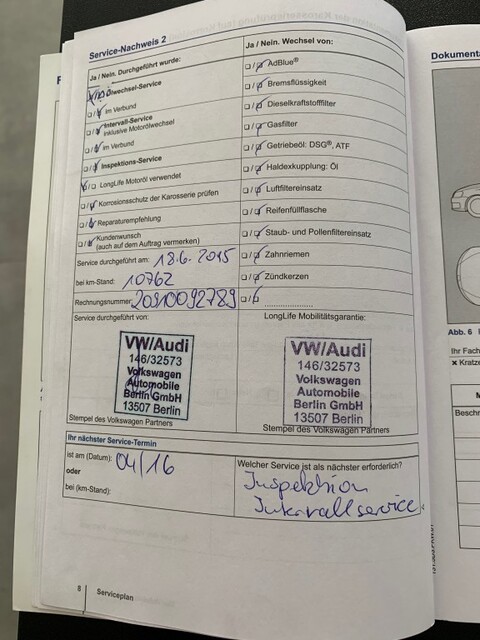 Service-Nachweis 2
Ja / Nein. Durchgeführt wurde:
Ölwechsel-Service
im Verbund
Intervall-Service
inklusive Motorölwechsel
im Verbund
Inspektions-Service
LongLife Motoröl verwendet
Korrosionsschutz der Karosserie prüfen
Reparaturempfehlung
Kundenwunsch
(auch auf dem Auftrag vermerken)
Service durchgeführt am: 18.6.2015
bei km-Stand: 10762
Rechnungsnummer:
Service durchgeführt von:
VW/Audi
146/32573
Volkswagen
Automobile
Berlin GmbH
13507 Berlin
Stempel des Volkswagen Partners
Ja / Nein. Wechsel von:
AdBlue®
Bremsflüssigkeit
Dieselkraftstofffilter
Gasfilter
Getriebeöl: DSG®, ATF
Haldexkupplung: Öl
Luftfiltereinsatz
Reifenfüllflasche
Staub- und Pollenfiltereinsatz
Zahnriemen
Zündkerzen
LongLife Mobilitätsgarantie:
VW/Audi
146/32573
Volkswagen
Automobile
Berlin GmbH
13507 Berlin
Stempel des Volkswagen Partners
Ihr nächster Service-Termin
ist am (Datum): 04/16
oder
bei (km-Stand):
Welcher Service ist als nächster erforderlich?
Inspektion
Intervallservice
8 Serviceplan
Dokumenta
Abb. 6
Ihr Fach
× Kratze
Beschr